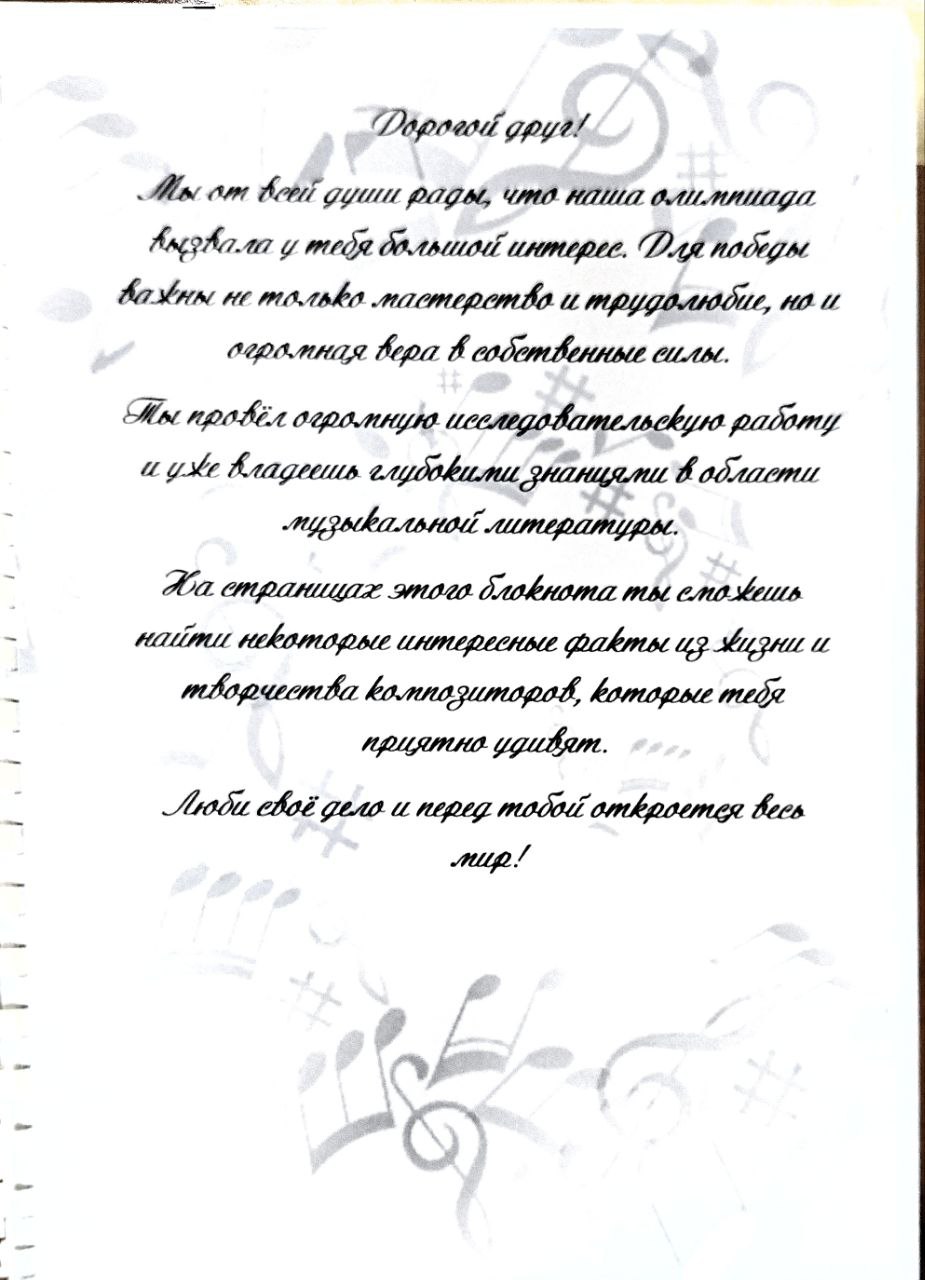 Дорогой друг!
Мы от всей души рады, что наша олимпиада
вызвала у тебя большой интерес. Для победы
важны не только мастерство и трудолюбие, но и
огромная вера в собственные силы.
Ты провёл огромную исследовательскую работу
и уже владеешь глубокими знаниями в области
музыкальной литературы.
На страницах этого блокнота ты сможешь
найти некоторые интересные факты из жизни и
творчества композиторов, которые тебя
приятно удивят.
Люби своё дело и перед тобой откроется весь
мир!